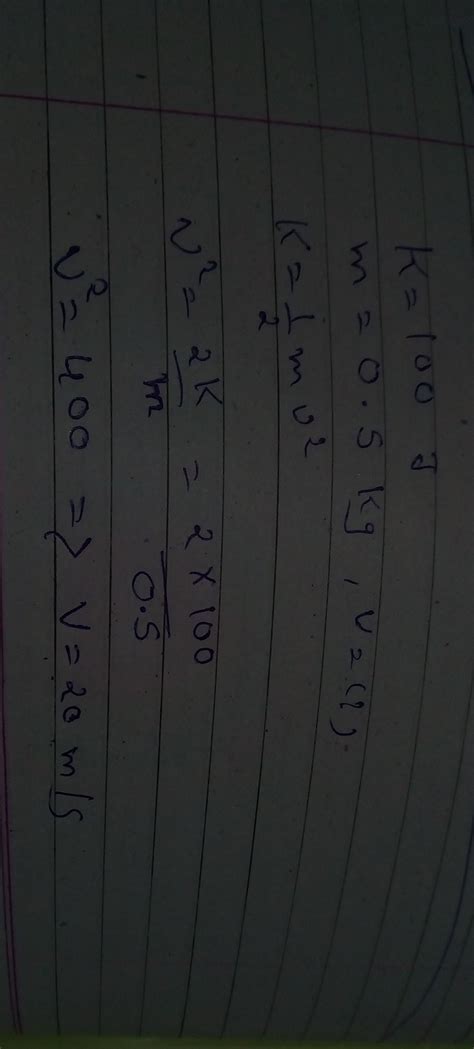 K = 100 J
m = 0.5 kg, v = (?).
K = 1/2 m v²
v² = 2K/m = 2 × 100/0.5
v² = 400 => v = 20 m/s